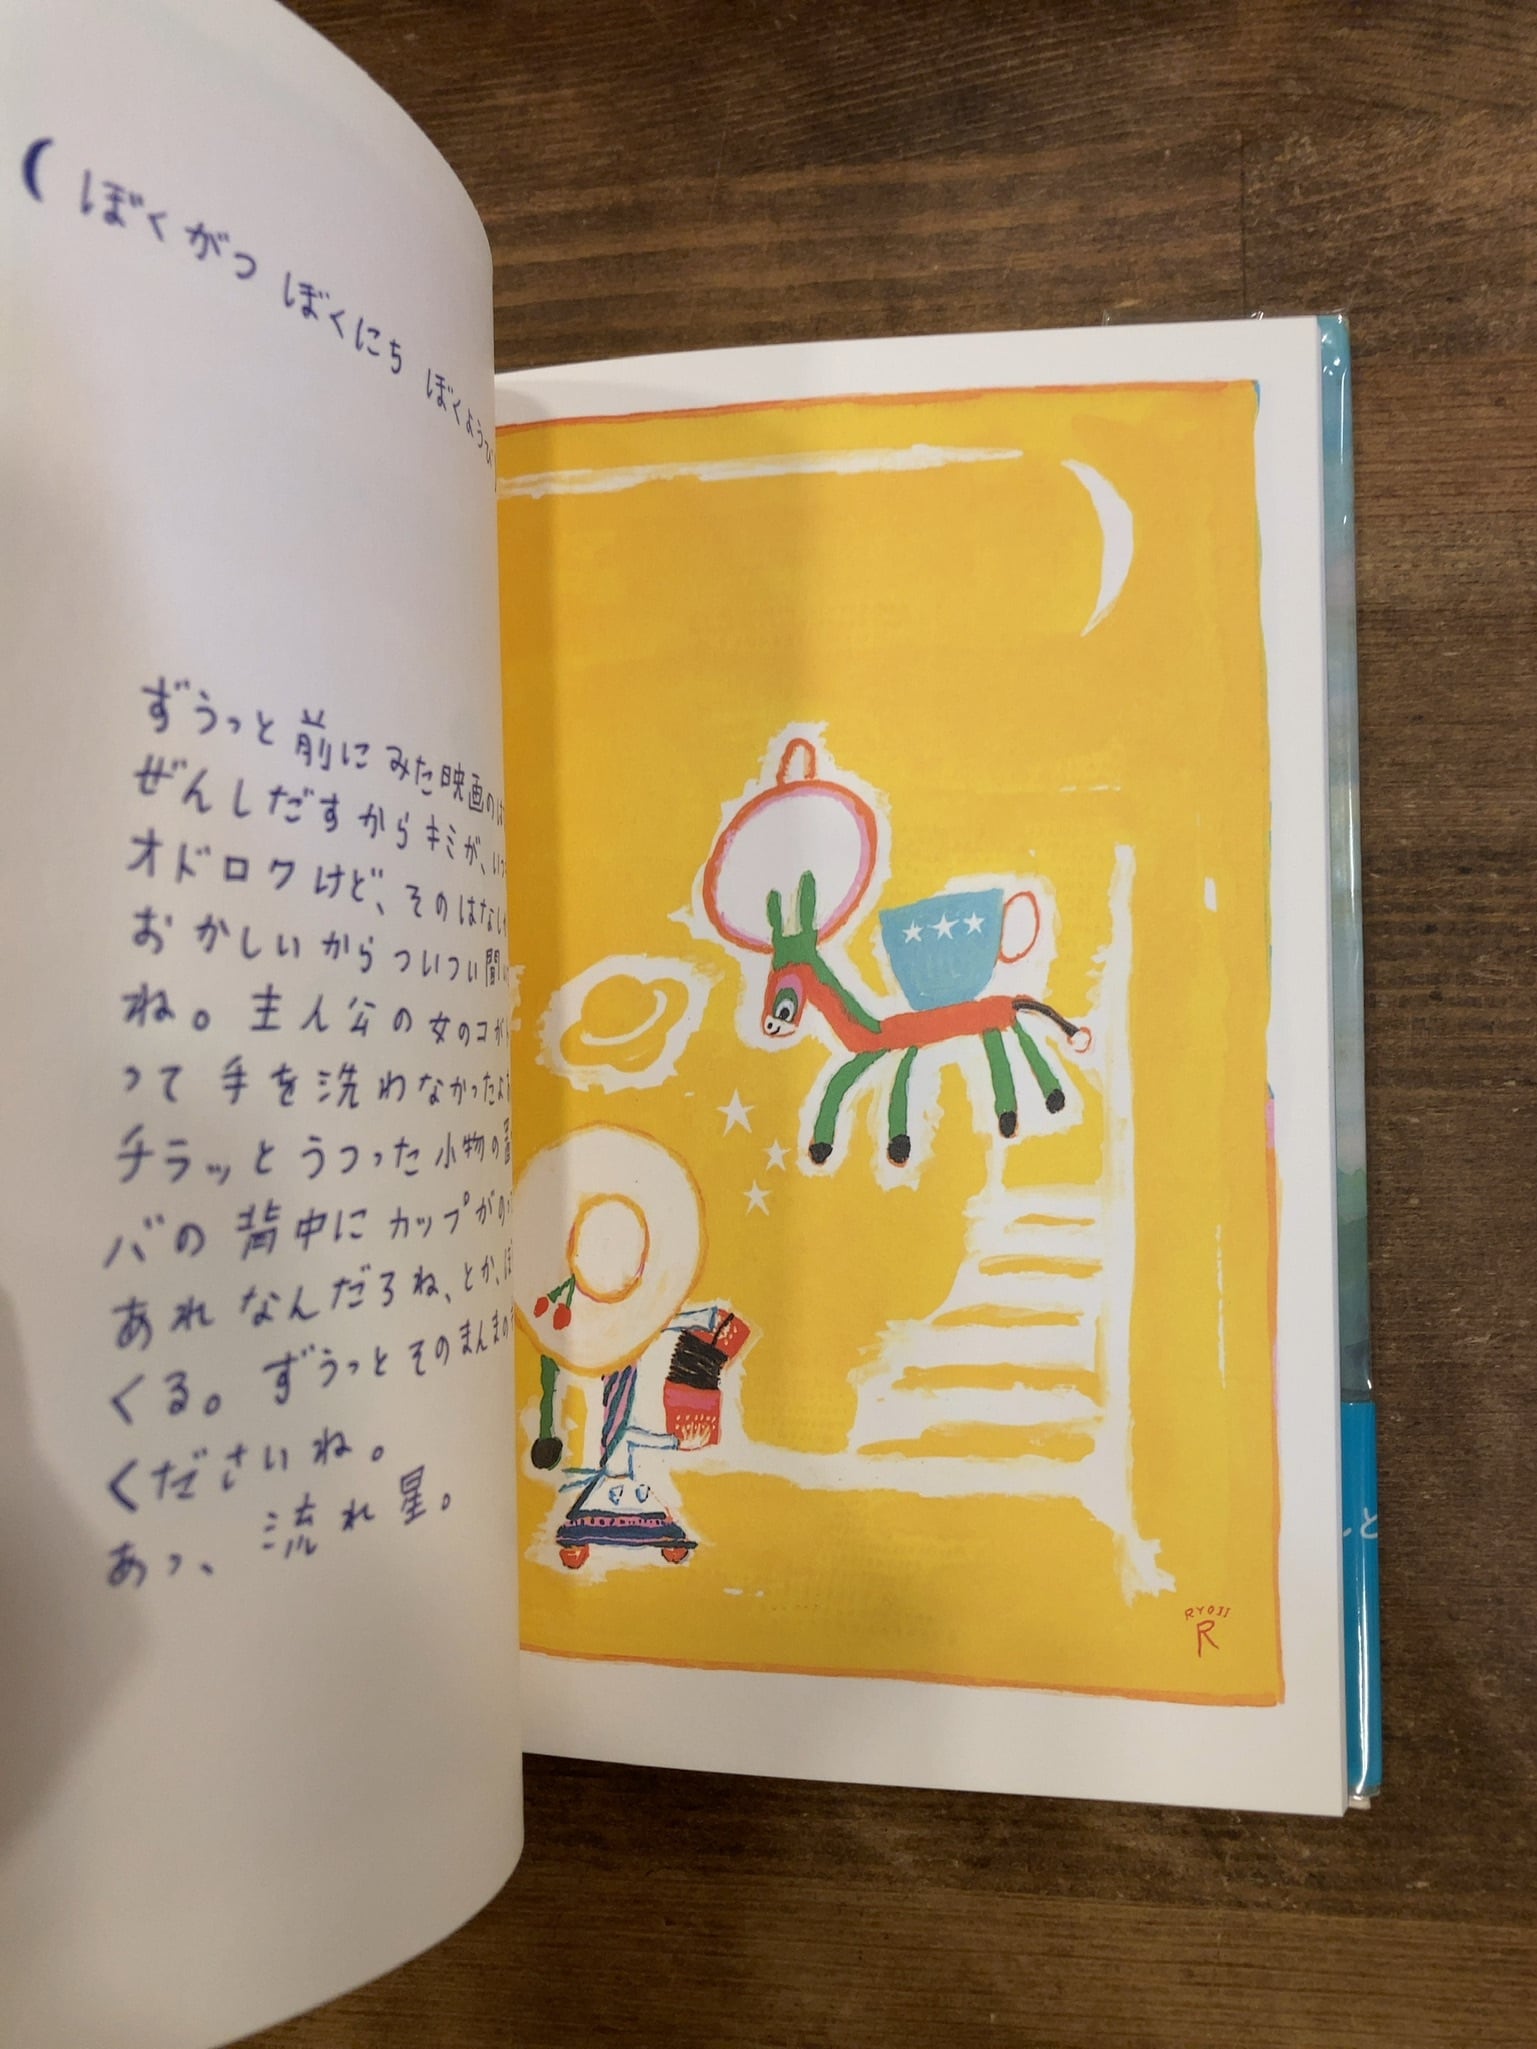 ぼくがつ ぼくにち ぼくようび
ずうっと 前に みた映画のは
ぜんしだすから キミが、いつ
オドロクけど、そのはなし
おかしいから ついつい聞い
ね。主人公の女のコが
って 手を洗わなかったよ
チラッと うつった 小物の
バの 背中に カップがのっ
あれ なんだろね、とか、ほ
くる。ずうっと そのまんまの
くださいね。
あっ、流れ星。
RYOJI
R
と